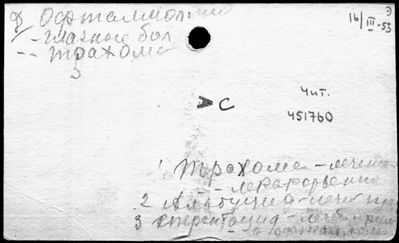 Офтальмология
- глазные бол
-- трахома
3
16/III-53
Э
С
Чит.
451760
1 Трахома - лечение
- лекарствен
2 Альбуцид - лечеб
3 Стрептоцид - лечеб